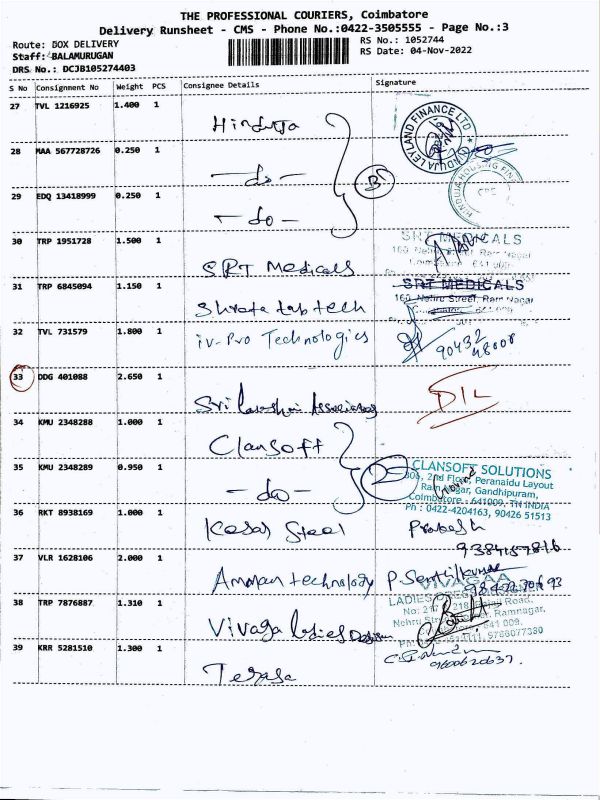 THE PROFESSIONAL COURIERS, Coimbatore
Delivery Runsheet - CMS - Phone No.:0422-3505555 - Page No.:3
Route: BOX DELIVERY
RS No.: 1052744
Staff: BALAMURUGAN
RS Date: 04-Nov-2022
DRS No.: DCJB105274403
S No Consignment No Weight PCS Consignee Details Signature
27 TVL 1216925 1.400 1 Hinduja
HINDUJA LEYLAND FINANCE LTD
28 MAA 567728726 0.250 1 -do-
HINDUJA HOUSING FINA
29 EDQ 13418999 0.250 1 -do-
30 TRP 1951728 1.500 1 SRT Medicals
SRT MEDICALS
160, Nehru Street, Ram Nagar
31 TRP 6845094 1.150 1
SRT MEDICALS
160, Nehru Street, Ram Nagar
32 TVL 731579 1.800 1 iv-Pro Technologies
90432
48008
33 DDG 401088 2.650 1 Sri Associates
D/L
34 KMU 2348288 1.000 1 Clansoft
35 KMU 2348289 0.950 1 -do-
CLANSOFT SOLUTIONS
306, 2nd Floor, Peranaidu Layout
Ram Nagar, Gandhipuram,
Coimbatore - 641009, TN INDIA
Ph : 0422-4204163, 90426 51513
36 RKT 8938169 1.000 1 Kesar Steel Prakash
9384157816
37 VLR 1628106 2.000 1 Amman technology P. Senthilkumar
38 TRP 7876887 1.310 1 Vivaga ladies Design
VIVAGAA
LADIES DRESS DESIGNER
Ramnagar,
39 KRR 5281510 1.300 1 Terasa
9600620637.